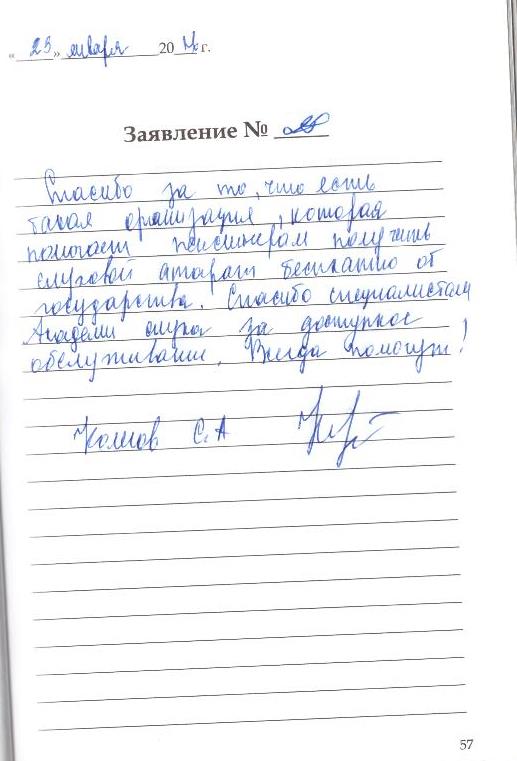 « 23 » января 20 г.
Заявление №
Спасибо за то, что есть
такая организация, которая
помогает пенсионерам получить
слуховой аппарат бесплатно от
государства. Спасибо специалистам
Академи слуха за доступное
обслуживании. Всегда помогут!
С.А
57